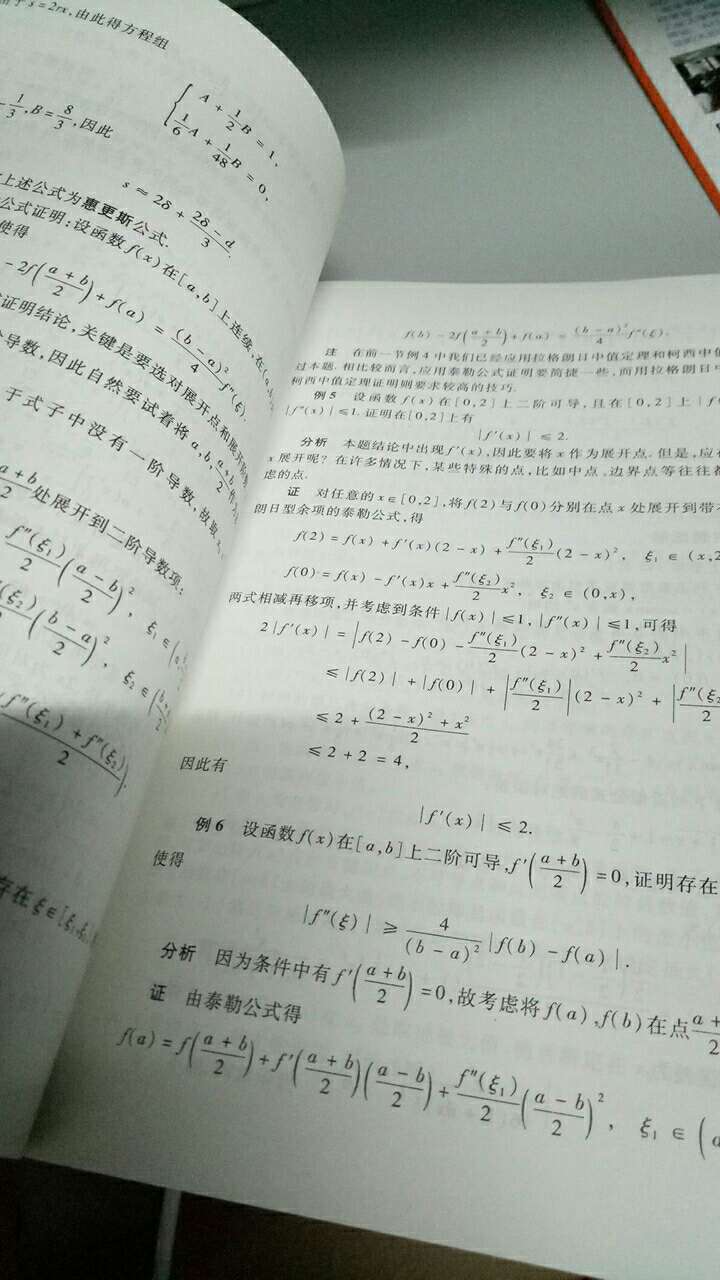 s = 2rx, 由此得方程组
A + \frac{1}{2}B = 1,
\frac{1}{6}A + \frac{1}{48}B = 0,
\frac{1}{3}, B = \frac{8}{3}, 因此
s ≈ 2δ + \frac{2δ - d}{3}.
上述公式为惠更斯公式.
公式证明: 设函数 f(x) 在 [a, b] 上连续, 在 (a,
使得
- 2f(\frac{a + b}{2}) + f(a) = \frac{(b - a)^2}{4} f″(ξ).
证明结论, 关键是要选对展开点和展开阶数
导数, 因此自然要试着将 a, b, \frac{a + b}{2}
于式子中没有一阶导数, 故取
\frac{a + b}{2} 处展开到二阶导数项:
\frac{f″(ξ_1)}{2}(\frac{a - b}{2})^2, ξ_1 ∈
\frac{(ξ_2)}{2}(\frac{b - a}{2})^2, ξ_2 ∈
\frac{f″(ξ_1) + f″(ξ_2)}{2}).
存在 ξ ∈ [ξ_1, ξ_2
f(b) - 2f(\frac{a + b}{2}) + f(a) = \frac{(b - a)^2}{4} f″(ξ).
注 在前一节例 4 中我们已经应用拉格朗日中值定理和柯西中值
过本题. 相比较而言, 应用泰勒公式证明要简捷一些, 而用拉格朗日中
柯西中值定理证明则要求较高的技巧.
例 5 设函数 f(x) 在 [0, 2] 上二阶可导, 且在 [0, 2] 上 | f(
|f″(x)| ≤ 1. 证明在 [0, 2] 上有
|f′(x)| ≤ 2.
分析 本题结论中出现 f′(x), 因此要将 x 作为展开点. 但是, 应
x 展开呢? 在许多情况下, 某些特殊的点, 比如中点、边界点等往往都
虑的点.
证 对任意的 x ∈ [0, 2], 将 f(2) 与 f(0) 分别在点 x 处展开到带
朗日型余项的泰勒公式, 得
f(2) = f(x) + f′(x)(2 - x) + \frac{f″(ξ_1)}{2}(2 - x)^2, ξ_1 ∈ (x, 2
f(0) = f(x) - f′(x)x + \frac{f″(ξ_2)}{2}x^2, ξ_2 ∈ (0, x),
两式相减再移项, 并考虑到条件 |f(x)| ≤ 1, |f″(x)| ≤ 1, 可得
2|f′(x)| = |f(2) - f(0) - \frac{f″(ξ_1)}{2}(2 - x)^2 + \frac{f″(ξ_2)}{2}x^2|
≤ |f(2)| + |f(0)| + |\frac{f″(ξ_1)}{2}|(2 - x)^2 + |\frac{f″(ξ_2}{2}
≤ 2 + \frac{(2 - x)^2 + x^2}{2}
≤ 2 + 2 = 4,
因此有
|f′(x)| ≤ 2.
例 6 设函数 f(x) 在 [a, b] 上二阶可导, f′(\frac{a + b}{2}) = 0, 证明存在
使得
|f″(ξ)| ≥ \frac{4}{(b - a)^2}|f(b) - f(a)|.
分析 因为条件中有 f′(\frac{a + b}{2}) = 0, 故考虑将 f(a), f(b) 在点 \frac{a +}{2}
证 由泰勒公式得
f(a) = f(\frac{a + b}{2}) + f′(\frac{a + b}{2})(\frac{a - b}{2}) + \frac{f″(ξ_1)}{2}(\frac{a - b}{2})^2, ξ_1 ∈ (a